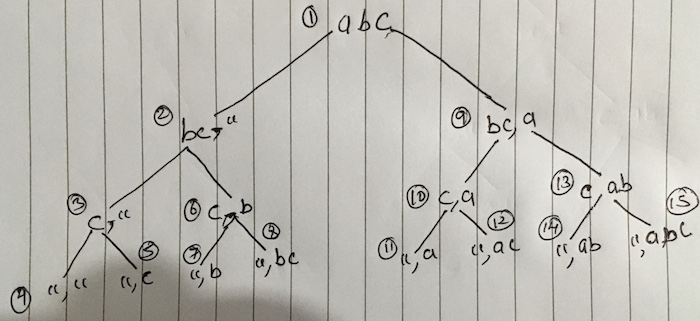 ① abc,
② bc, "
⑨ bc, a
③ c, "
⑥ c, b
⑩ c, a
⑬ c ab
④ ", "
⑤ ", c
⑦ ", b
⑧ ", bc
⑪ ", a
⑫ ", ac
⑭ ", ab
⑮ ", abc